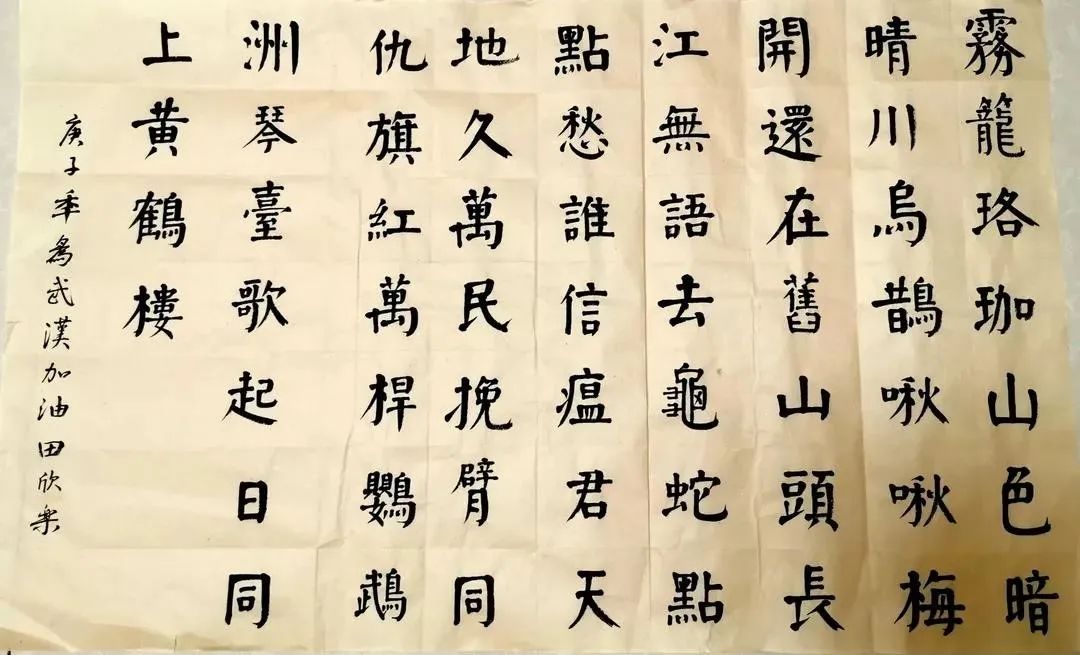 霧籠珞珈山色暗
晴川烏鵲啾啾梅
開還在舊山頭長
江無語去龜蛇點
點愁誰信瘟君天
地久萬民挽臂同
仇旗紅萬桿鸚鵡
洲琴臺歌起日同
上黃鶴樓
庚子年為武漢加油田欣樂